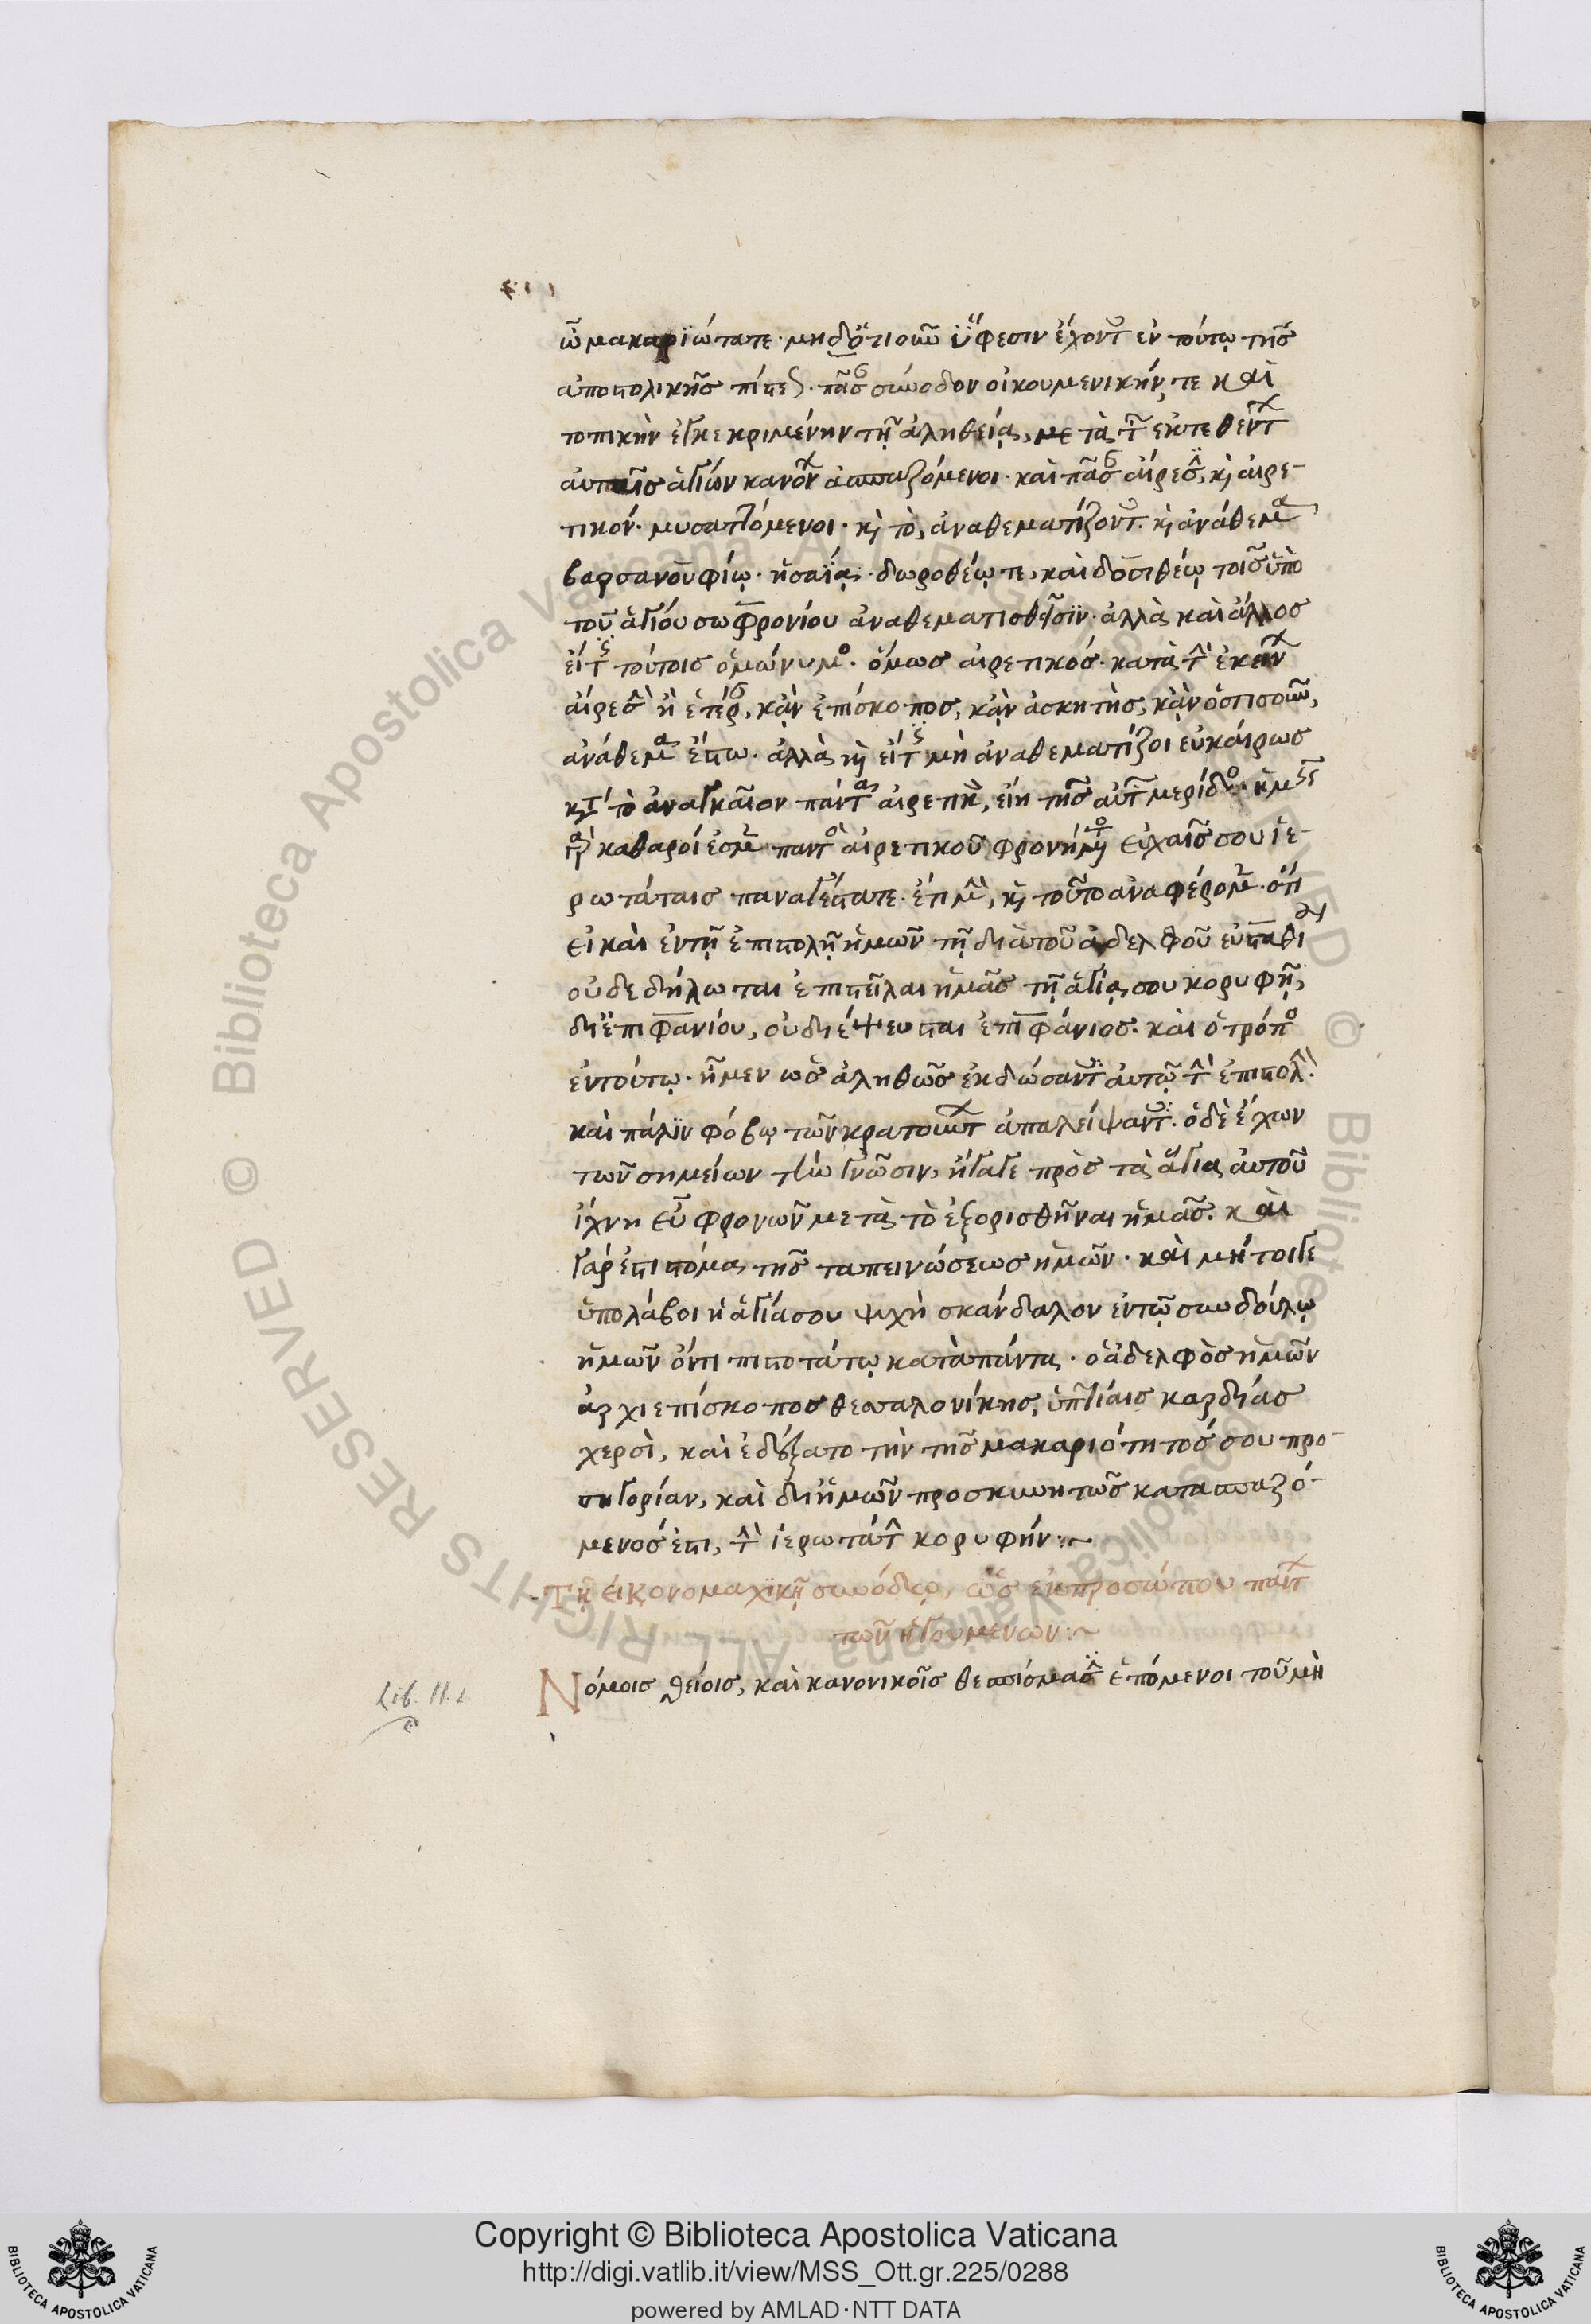 ὦ μακαριώτατε· μηδ' ὁτιοῦν ὕφεσιν ἔχοντες ἐν τούτω τῆς
ἀποστολικῆς πίστεως· πᾶσαν σύνοδον οἰκουμενικήν τε καὶ
τοπικὴν ἐγκεκριμένην τῇ ἀληθείᾳ, μετὰ τῶν ἐκτεθέντων
αὐταῖς ἁγίων κανόνων ἀσπαζόμενοι· καὶ πᾶσαν αἵρεσιν, καὶ αἱρε-
τικόν· μυσαττόμενοι· καὶ τὸ, ἀναθεματίζοντες· καὶ ἀνάθεμα
βαρσανουφίῳ· ἡσαΐᾳ· δωροθέῳ τε, καὶ δοσιθέῳ τοῖς ὑπὸ
τοῦ ἁγίου σωφρονίου ἀναθεματισθεῖσιν· ἀλλὰ καὶ ἄλλος
εἴ τις τούτοις ὁμώνυμος· ὅμως αἱρετικός· κατὰ τὴν ἐκείνων
αἵρεσιν ἢ ἑτέραν, κἂν ἐπίσκοπος, κἂν ἀσκητὴς, κἂν ὁστισοῦν,
ἀνάθεμα ἔστω· ἀλλὰ καὶ εἴ τις μὴ ἀναθεματίζοι εὐκαίρως
κατὰ τὸ ἀναγκαῖον πάντας αἱρετικοὺς, εἴη τῆς αὐτῶν μερίδος· ἡμεῖς
πάτερ καθαροί ἐσμεν παντὸς αἱρετικοῦ φρονήματος εὐχαῖς σου ἱε-
ρωτάταις παναγέστατε· ἔτι μὴν, καὶ τοῦτο ἀναφέρομεν· ὅτι
εἰ καὶ ἐν τῇ ἐπιστολῇ ἡμῶν τῇ διὰ τοῦ ἀδελφοῦ εὐσταθίου
οὐ δεδήλωται ἐπιστεῖλαι ἡμᾶς τῇ ἁγίᾳ σου κορυφῇ,
δι' ἐπιφανίου, οὐ διέψευσται ἐπιφάνιος· καὶ ὁ τρόπος
ἐν τούτῳ· ἦμεν ὡς ἀληθῶς ἐκδώσαντες αὐτῷ τὴν ἐπιστολήν·
καὶ πάλιν φόβῳ τῶν κρατούντων ἀπαλείψαντες· ὁ δὲ ἔχων
τῶν σημείων τὴν γνῶσιν, ἤγαγε πρὸς τὰ ἅγια αὐτοῦ
ἴχνη εὖ φρονῶν μετὰ τὸ ἐξορισθῆναι ἡμᾶς· καὶ
γάρ ἐστι στόμα τῆς ταπεινώσεως ἡμῶν· καὶ μή τοιγε
ὑπολάβοι ἡ ἁγία σου ψυχὴ σκάνδαλον ἐν τῷ συνδούλῳ
ἡμῶν ὄντι πιστοτάτῳ κατὰ πάντα· ὁ ἀδελφὸς ἡμῶν
ἀρχιεπίσκοπος θεσσαλονίκης, ὑπτίαις καρδίας
χερσὶ, καὶ ἐδέξατο τὴν τῆς μακαριότητός σου προ-
σηγορίαν, καὶ δι' ἡμῶν προσκυνητῶς κατασπαζό-
μενός ἐστι, τὴν ἱερωτάτην κορυφήν:~
Τῇ εἰκονομαχικῇ συνόδῳ, ὡς ἐκ προσώπου πάντων
τῶν ἡγουμένων:~
Νόμοις θείοις, καὶ κανονικοῖς θεσπίσμασιν ἑπόμενοι τοῦ μὴ
Lib. II. 1.
Copyright © Biblioteca Apostolica Vaticana
http://digi.vatlib.it/view/MSS_Ott.gr.225/0288
powered by AMLAD·NTT DATA